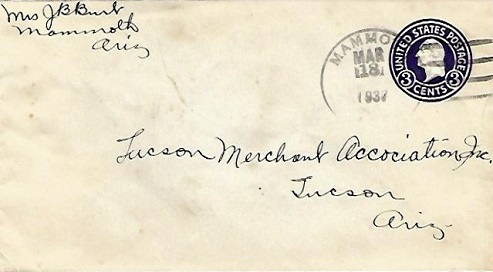 Mrs J B Burt
Mammoth
Ariz
MAMMO
MAR
18
1937
UNITED STATES POSTAGE
3 CENTS 3
Tucson Merchant Accociation, Inc.
Tucson
Ariz.